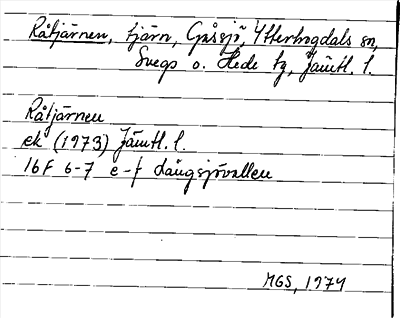 Råtjärnen, tjärn, Gåssjö, Ytterhogdals sn,
Svegs o. Hede tg, Jämtl. l.
Råtjärnen
ek (1973) Jämtl. l.
16F 6-7 e-f Långsjövallen
MGS, 1974